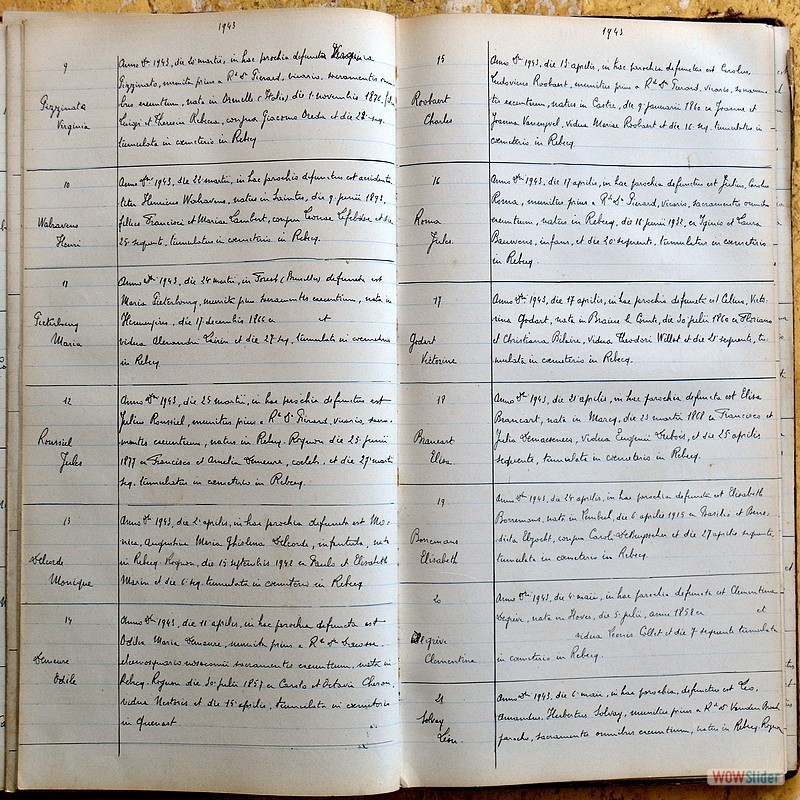 1943
9
Pizzinato
Virginia
Anno Dni 1943, die 20 martii, in hac parochia defuncta Virginia
Pizzinato, munita prius a Rdo Do Pierard, vicario, sacramentis omni
bus exeuntium, nata in Ormelle (Italia) die 1 novembris 1876,
Luigi et Theresia Rebena, conjux Giacomo Oreda et die 22 seq.
tumulata in cœmeterio in Rebecq
10
Walravens
Henri
Anno Dni 1943, die 22 martii, in hac parochia defunctus est acciden
taliter Henricus Walravens, natus in Saintes, die 9 junii 1893,
filius Francisci et Mariae Lambert, conjux Leoniae Lefebvre et die
25 sequenti, tumulatus in cœmeterio in Rebecq.
11
Pieterbourg
Maria
Anno Dni 1943, die 24 martii, in Forest (Bruxelles) defuncta est
Maria Pieterbourg, munita prius sacramentis exeuntium, nata in
Hennuyères, die 17 decembris 1866 ex et
vidua Alexandri Thirin et die 27 seq. tumulata in cœmeterio
in Rebecq
12
Roussiel
Jules
Anno Dni 1943, die 25 martii, in hac parochia defunctus est
Julius Roussiel, munitus prius a Rdo Do Pierard, vicario, sacra-
mentis exeuntium, natus in Rebecq-Rognon die 25 junii
1877 ex Francisco et Amelia Demeure, coelebs, et die 27 martii
seq. tumulatus in cœmeterio in Rebecq.
13
Delcorde
Monique
Anno Dni 1943, die 2 aprilis, in hac parochia defuncta est Mo-
nica, Augustina Maria Ghislena Delcorde, infantula, nata
in Rebecq-Rognon, die 15 septembris 1942 ex Paulo et Elisabeth
Marin et die 6 seq. tumulata in cœmeterio in Rebecq
14
Demeure
Odile
Anno Dni 1943, die 11 aprilis, in hac parochia defuncta est
Odilia Maria Demeure, munita prius a Rdo Do
eleemosynario nosocomii sacramentis exeuntium, nata in
Rebecq-Rognon die 30 julii 1857 ex Carolo et Octavia Cheron,
vidua Nestoris et die 15 aprilis, tumulata in cœmeterio
in Quenast
1943
15
Roobaert
Charles
Anno Dni 1943, die 13 aprilis, in hac parochia defunctus est Carolus,
Ludovicus Roobaert, munitus prius a Rdo Do Pierard, Vicario, sacramen-
tis exeuntium, natus in Castre, die 9 januarii 1860 ex Joanne et
Joanna Vancuyel, viduus Mariae Roobaert et die 16 seq. tumulatus in
cœmeterio in Rebecq.
16
Roma
Jules
Anno Dni 1943, die 17 aprilis, in hac parochia defunctus est Julius, Carolus
Roma, munitus prius a Rdo Do Pierard, vicario, sacramentis omnibus
exeuntium, natus in Rebecq, die 16 junii 1932, ex Iginio et Laura
Bauwens, infans, et die 20 sequenti, tumulatus in cœmeterio
in Rebecq.
17
Godart
Victorine
Anno Dni 1943, die 17 aprilis, in hac parochia defuncta est Celina, Victo-
rina Godart, nata in Braine le Comte, die 30 julii 1860 ex Floriano
et Christiana Pilaire, vidua Theodori Willot et die 21 sequenti, tu-
mulata in cœmeterio in Rebecq.
18
Brancart
Elisa
Anno Dni 1943, die 21 aprilis, in hac parochia defuncta est Elisa
Brancart, nata in Marcq, die 23 martii 1868 ex Francisco et
Julia Demaseneer, vidua Eugenii Debois, et die 25 aprilis
sequenti, tumulata in cœmeterio in Rebecq.
19
Borremans
Elisabeth
Anno Dni 1943, die 24 aprilis, in hac parochia defuncta est Elisabeth
Borremans, nata in Pembeek, die 6 aprilis 1915 ex Basilio et Bene-
dicta Elpocht, conjux Caroli Dekuyssscher et die 27 aprilis sequenti,
tumulata in cœmeterio in Rebecq.
20
Degrève
Clementine
Anno Dni 1943, die 4 maii, in hac parochia defuncta est Clementina
Degrève, nata in Hoves, die 5 julii, anni 1858 ex et
vidua Leonis Collet et die 7 sequenti tumulata
in cœmeterio in Rebecq.
21
Solvay
Léon
Anno Dni 1943, die 6 maii, in hac parochia, defunctus est Leo,
Amandus, Hubertus Solvay, munitus prius a Rdo Do Vanden Brande
parocho, sacramentis omnibus exeuntium, natus in Rebecq-Rognon
WOWSlider